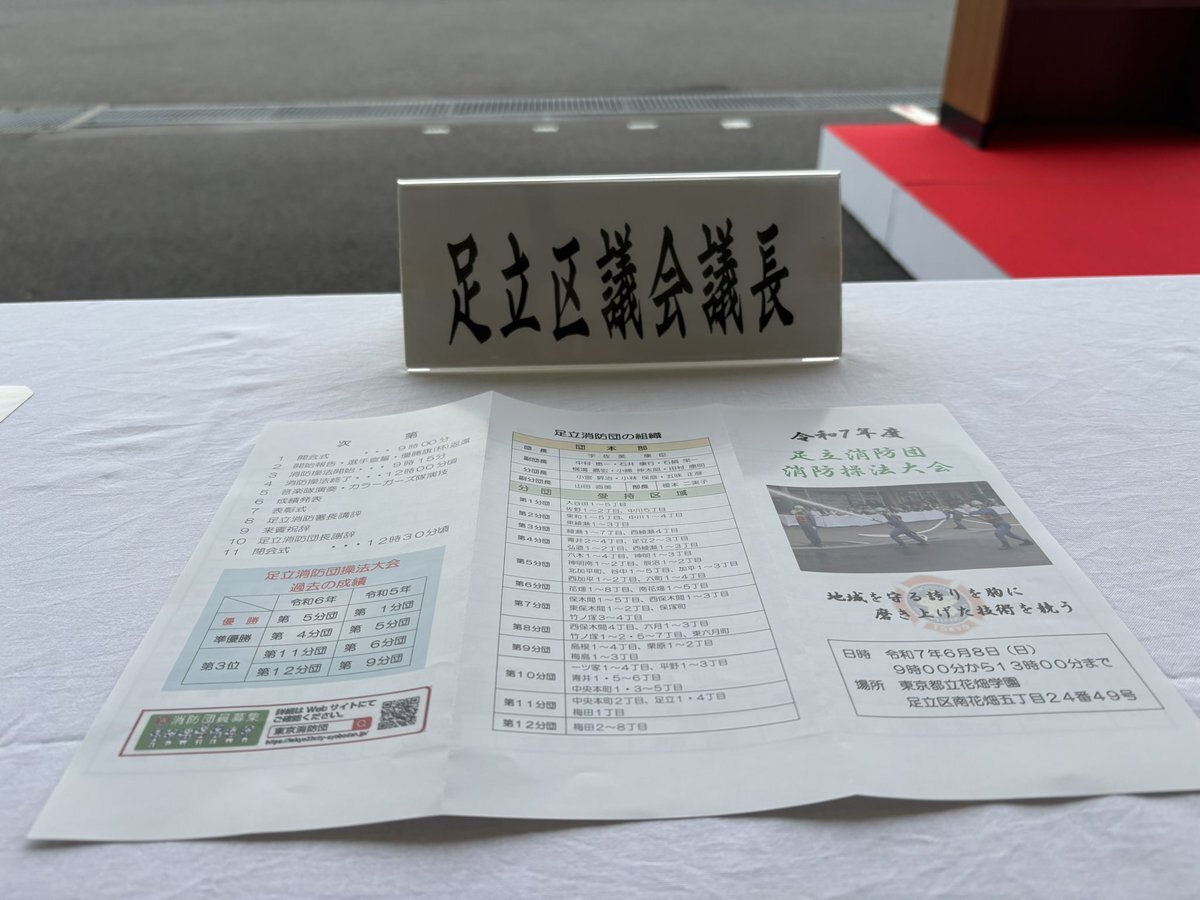 足立区議会議長
次 第
1 開会式 ・・・・9時00分
2 開始報告・選手宣誓・優勝旗(杯)返還
3 消防操法開始・・・9時15分
4 消防操法終了・・・12時00分頃
5 音楽隊演奏・カラーガーズ隊演技
6 成績発表
7 表彰式
8 足立消防署長講評
9 来賓祝辞
10 足立消防団長謝辞
11 閉会式 ・・・12時30分頃
足立消防団操法大会
過去の成績
令和6年 令和5年
優勝 第 5分団 第 1分団
準優勝 第 4分団 第 5分団
第3位 第11分団 第 6分団
第12分団 第 9分団
消防団員募集
詳細は Web サイトにて
ご確認ください。
東京消防団
足立消防団の組織
団 本 部
団長 宇佐美 康臣
副団長
分団長
副分団長 部長
分 団 受 持 区 域
第1分団 大谷田1～5丁目
佐野1～2丁目、中川5丁目
第2分団 東和1～5丁目、中川1～4丁目
第3分団 東綾瀬1～3丁目
綾瀬1～7丁目、西綾瀬4丁目
第4分団 青井2～4丁目、足立3丁目
弘道1～2丁目、西綾瀬1～3丁目
第5分団 六木1～4丁目、神明1～3丁目
神明南1～2丁目、辰沼1～2丁目
北加平町、谷中1～5丁目、加平1～3丁目
西加平1～2丁目、六町1～4丁目
第6分団 花畑1～8丁目、南花畑1～5丁目
第7分団 保木間1～5丁目、西保木間1～3丁目
東保木間1～2丁目、保塚町
竹ノ塚3～4丁目
第8分団 西保木間4丁目、六月1～3丁目
竹ノ塚1～2・5～7丁目、東六月町
第9分団 島根1～4丁目、栗原1～2丁目
梅島1～3丁目
第10分団 一ツ家1～4丁目、平野1～3丁目
青井1・5～6丁目
中央本町1・3～5丁目
第11分団 中央本町2丁目、足立1・4丁目
梅田1丁目
第12分団 梅田2～8丁目
令和7年度
足立消防団
消防操法大会
地域を守る誇りを胸に
磨き上げた技術を競う
日時 令和7年6月8日（日）
9時00分から13時00分まで
場所 東京都立花畑学園
足立区南花畑五丁目24番49号